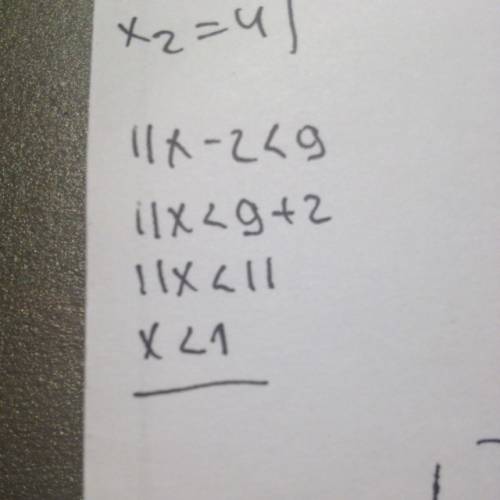 x₂=4)
11x-2<9
11x<9+2
11x<11
x<1